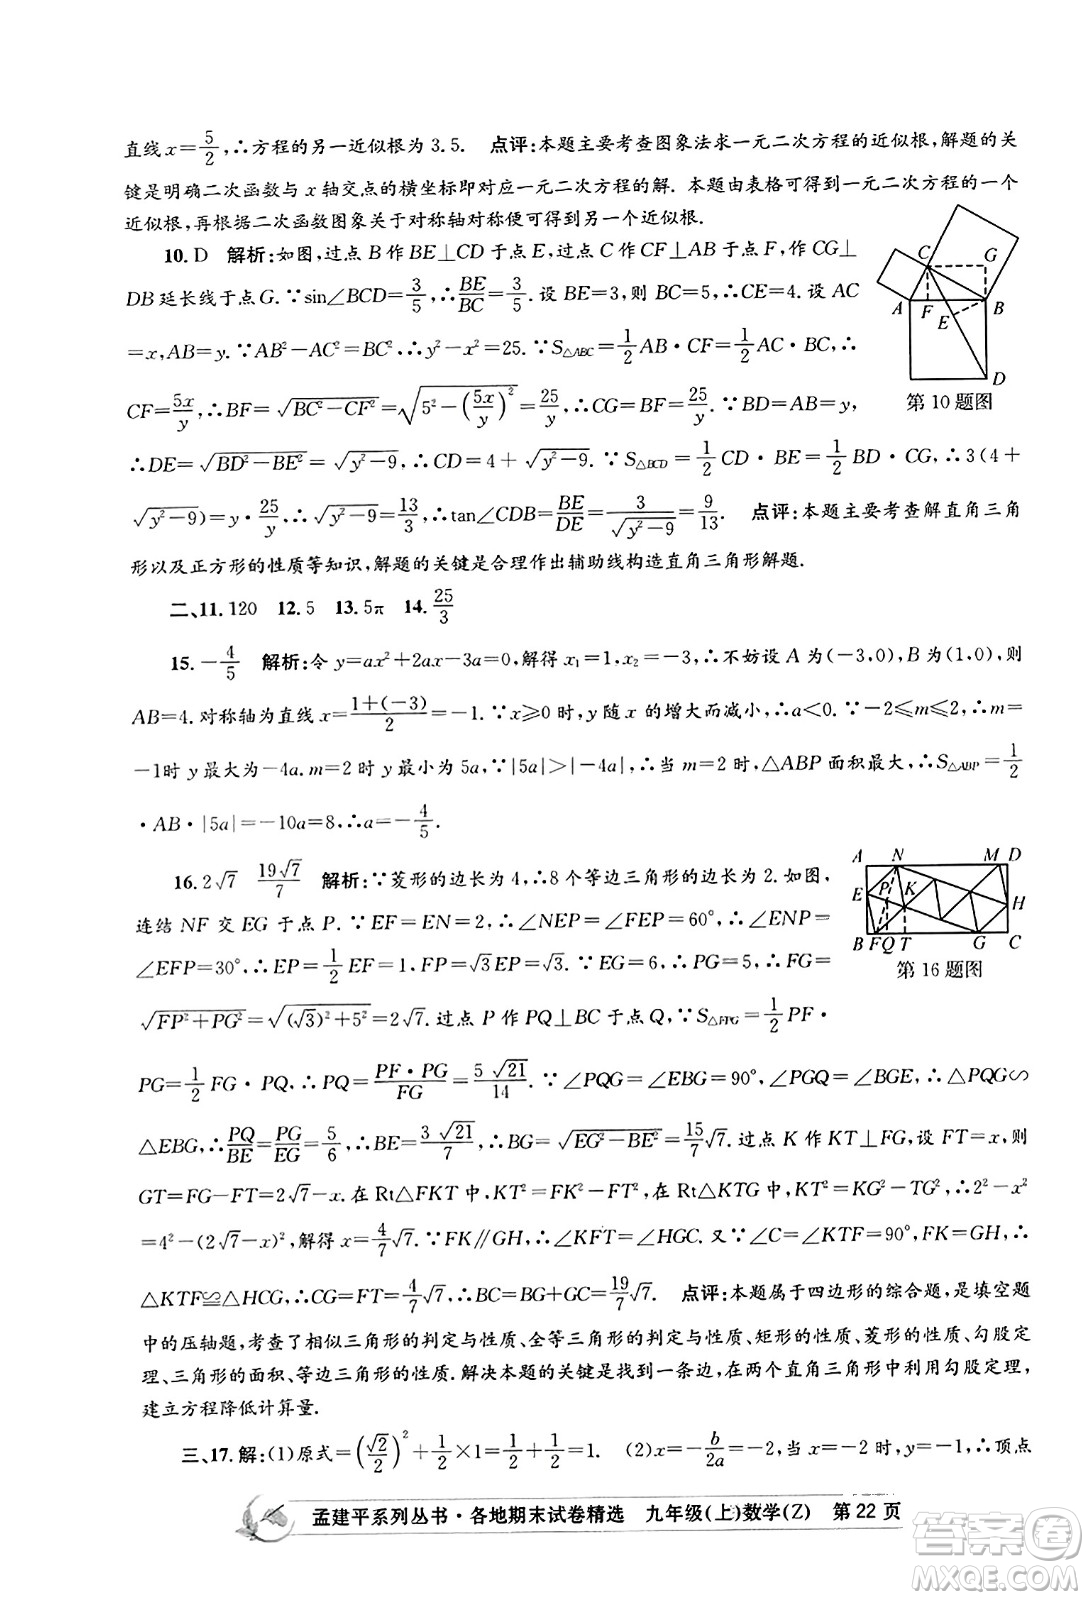 直线 x=5/2,∴方程的另一近似根为 3.5.　点评:本题主要考查图象法求一元二次方程的近似根,解题的关
键是明确二次函数与 x 轴交点的横坐标即对应一元二次方程的解. 本题由表格可得到一元二次方程的一个
近似根,再根据二次函数图象关于对称轴对称便可得到另一个近似根.
10. D　解析:如图,过点 B 作 BE⊥CD 于点 E,过点 C 作 CF⊥AB 于点 F,作 CG⊥
DB 延长线于点 G. ∵sin∠BCD=3/5,∴BE/BC=3/5. 设 BE=3,则 BC=5,∴CE=4. 设 AC
=x,AB=y. ∵AB²-AC²=BC²,∴y²-x²=25. ∵S△ABC=1/2 AB·CF=1/2 AC·BC,∴
CF=5x/y,∴BF=√(BC²-CF²)=√(5²-(5x/y)²)=25/y,∴CG=BF=25/y. ∵BD=AB=y,
∴DE=√(BD²-BE²)=√(y²-9),∴CD=4+√(y²-9). ∵S△BCD=1/2 CD·BE=1/2 BD·CG,∴3(4+
√(y²-9))=y·25/y,∴√(y²-9)=13/3,∴tan∠CDB=BE/DE=3/√(y²-9)=9/13.　点评:本题主要考查解直角三角
形以及正方形的性质等知识,解题的关键是合理作出辅助线构造直角三角形解题.
C
G
A
F
E
B
D
第 10 题图
二、11. 120　12. 5　13. 5π　14. 25/3
15. -4/5　解析:令 y=ax²+2ax-3a=0,解得 x₁=1,x₂=-3,∴不妨设 A 为(-3,0),B 为(1,0),则
AB=4. 对称轴为直线 x=(1+(-3))/2=-1. ∵x≥0 时,y 随 x 的增大而减小,∴a<0. ∵-2≤m≤2,∴m=
-1时 y 最大为-4a. m=2 时 y 最小为 5a,∵|5a|>|-4a|,∴当 m=2 时,△ABP 面积最大,∴S△ABP=1/2
·AB·|5a|=-10a=8,∴a=-4/5.
16. 2√7　19√7/7　解析:∵菱形的边长为 4,∴8 个等边三角形的边长为 2. 如图,
连结 NF 交 EG 于点 P. ∵EF=EN=2,∴∠NEP=∠FEP=60°,∴∠ENP=
∠EFP=30°,∴EP=1/2 EF=1,∴FP=√3EP=√3. ∵EG=6,∴PG=5,∴FG=
√(FP²+PG²)=√((√3)²+5²)=2√7. 过点 P 作 PQ⊥BC 于点 Q,∵S△FPG=1/2 PF·
PG=1/2 FG·PQ,∴PQ=PF·PG/FG=5√21/14. ∵∠PQG=∠EBG=90°,∠PGQ=∠BGE,∴△PQG∽
△EBG,∴PQ/BE=PG/EG=5/6,∴BE=3√21/7,∴BG=√(EG²-BE²)=15/7√7. 过点 K 作 KT⊥FG,设 FT=x,则
GT=FG-FT=2√7-x. 在 Rt△FKT 中,KT²=FK²-FT²,在 Rt△KTG 中,KT²=KG²-TG²,∴2²-x²
=4²-(2√7-x)²,解得 x=4/7√7. ∵FK∥GH,∴∠KFT=∠HGC. 又∵∠C=∠KTF=90°,FK=GH,∴
△KTF≌△HCG,∴CG=FT=4/7√7,∴BC=BG+CG=19/7√7.　点评:本题属于四边形的综合题,是填空题
中的压轴题,考查了相似三角形的判定与性质、全等三角形的判定与性质、矩形的性质、菱形的性质、勾股定
理、平行四边形的性质、等边三角形的性质. 解决本题的关键是找到一条边,在两个直角三角形中利用勾股定理,
建立方程降低计算量.
A N M D
E P K H
B F Q T G C
第 16 题图
三、17. 解:(1)原式=(√2/2)²+1/2×1=1/2+1/2=1.　(2)x=-b/2a=-2,当 x=-2 时,y=-1,∴顶点
孟建平系列丛书·各地期末试卷精选　九年级(上)数学(Z)　第 22 页
答案圈
MXQE.COM